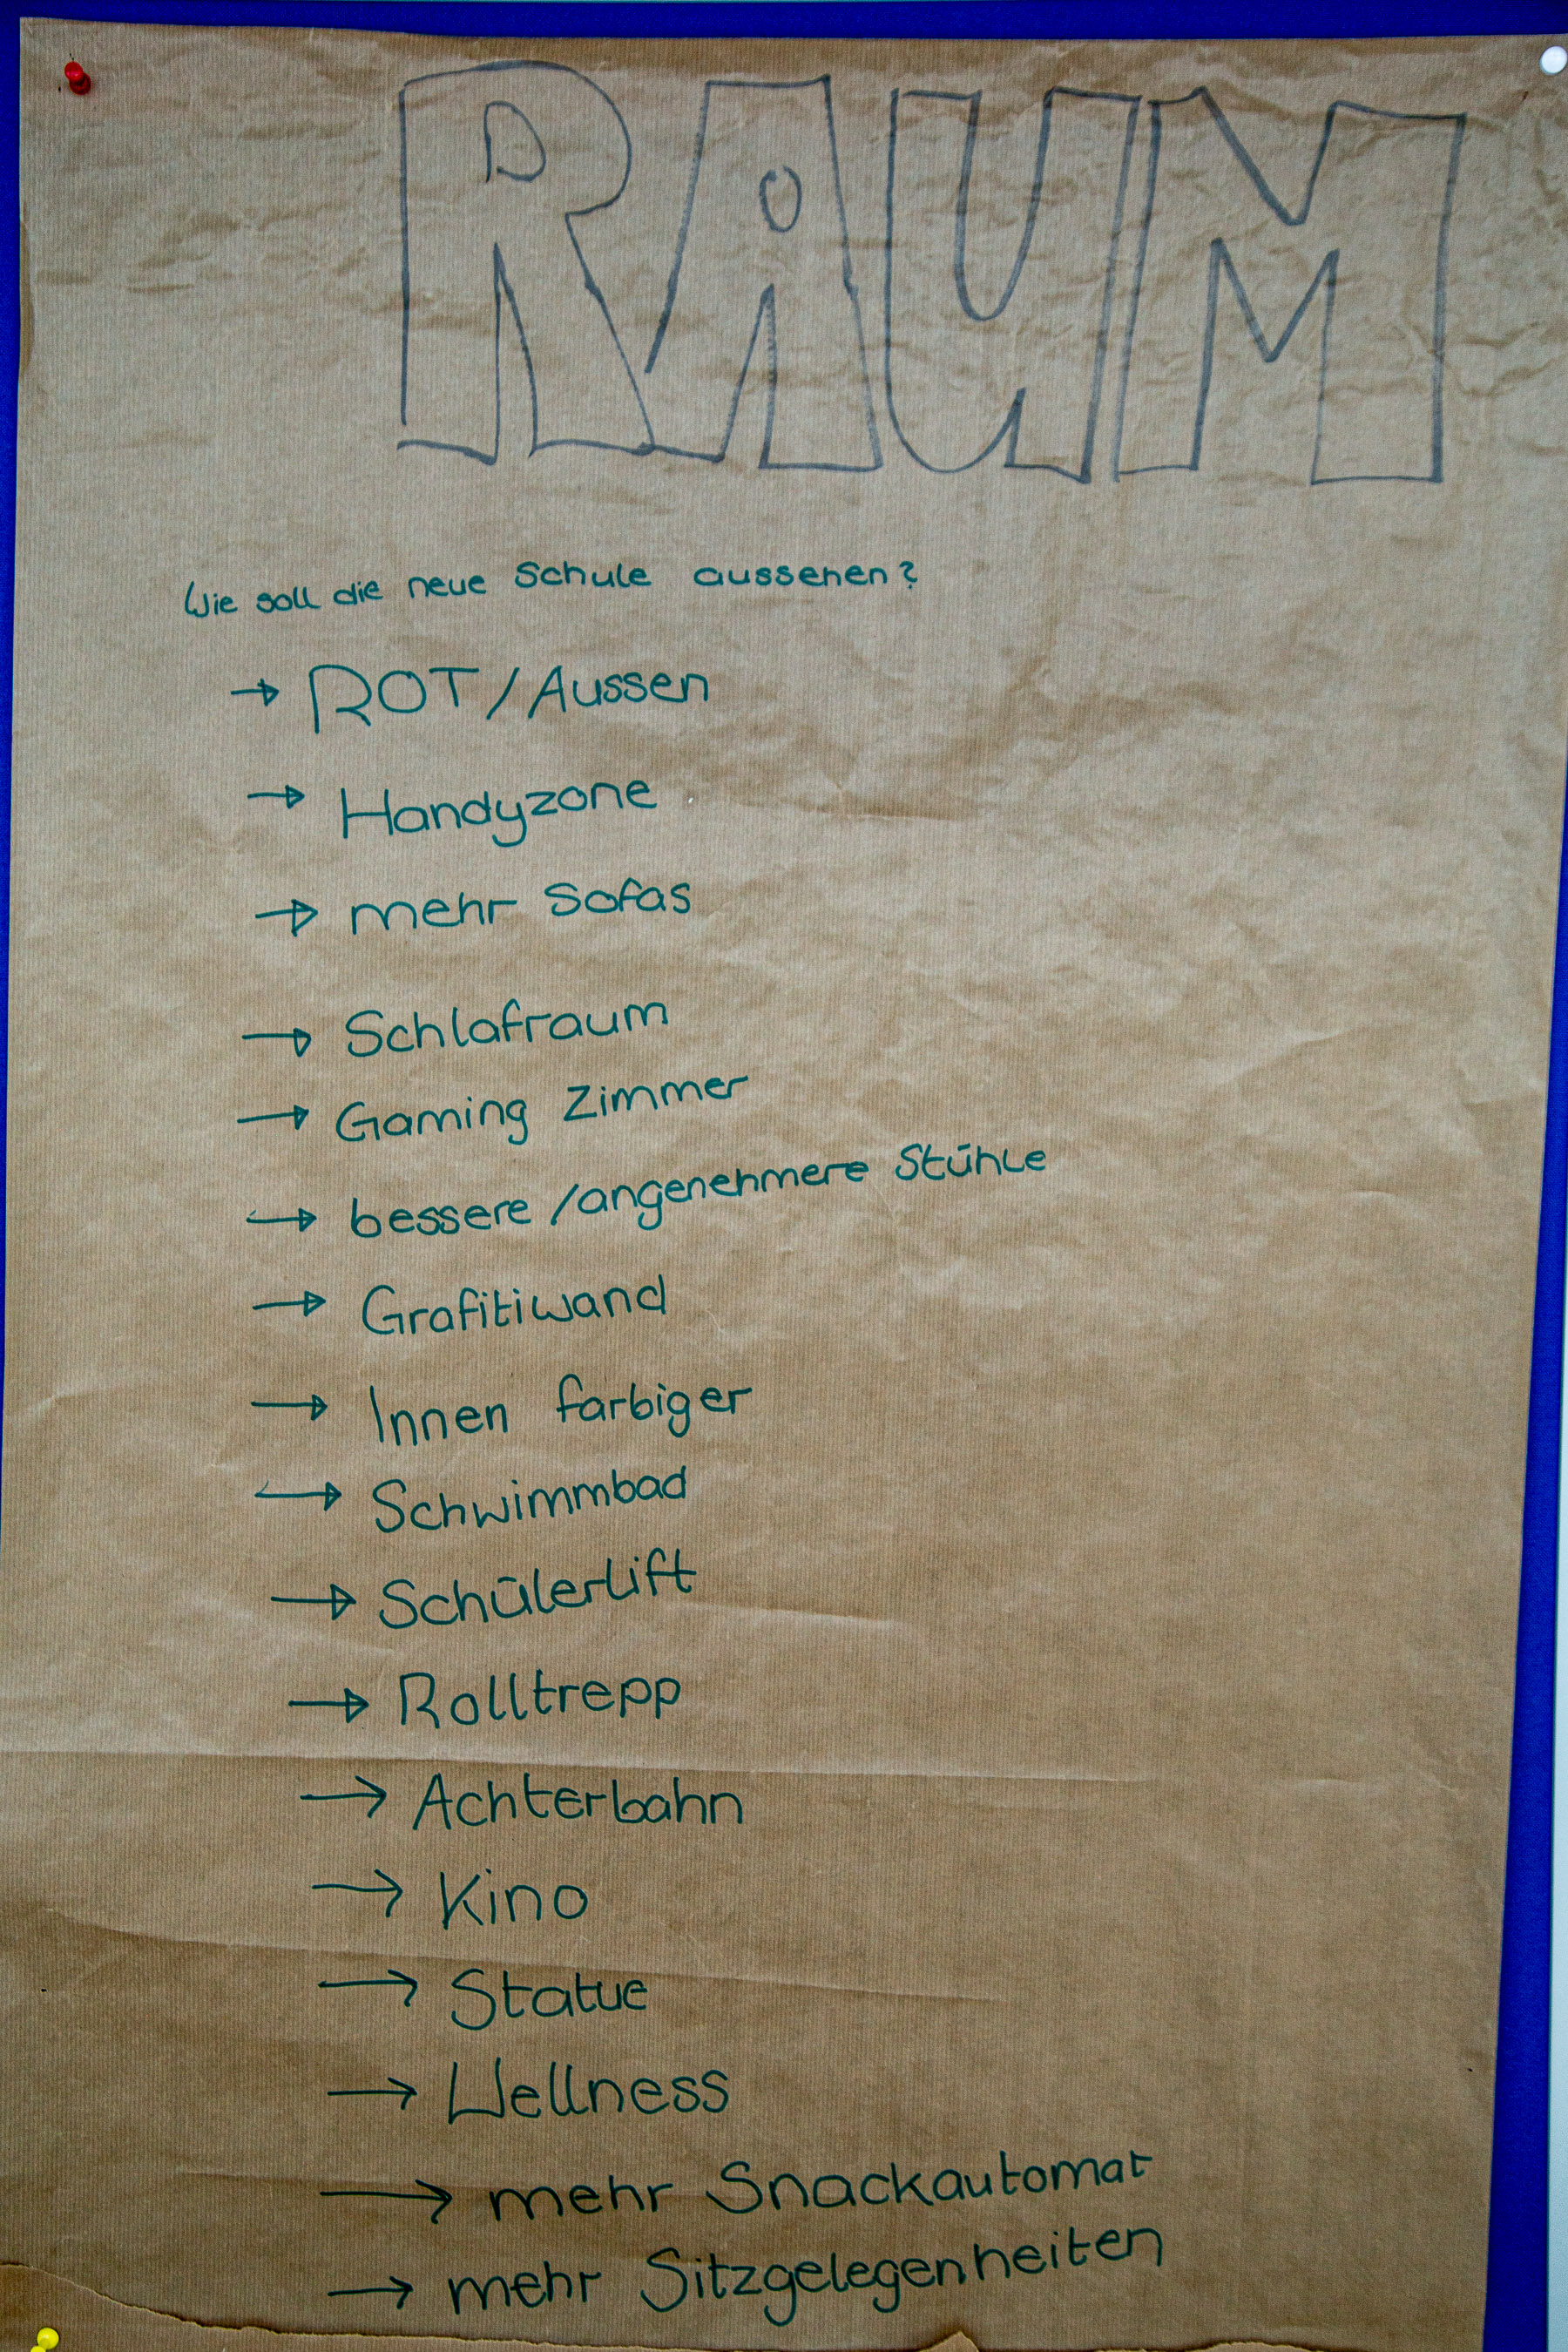 RAUM
Wie soll die neue Schule aussehen?
→ ROT/Aussen
→ Handyzone
→ mehr Sofas
→ Schlafraum
→ Gaming Zimmer
→ bessere/angenehmere Stühle
→ Grafitiwand
→ Innen farbiger
→ Schwimmbad
→ Schülerlift
→ Rolltrepp
→ Achterbahn
→ Kino
→ Statue
→ Wellness
→ mehr Snackautomat
→ mehr Sitzgelegenheiten